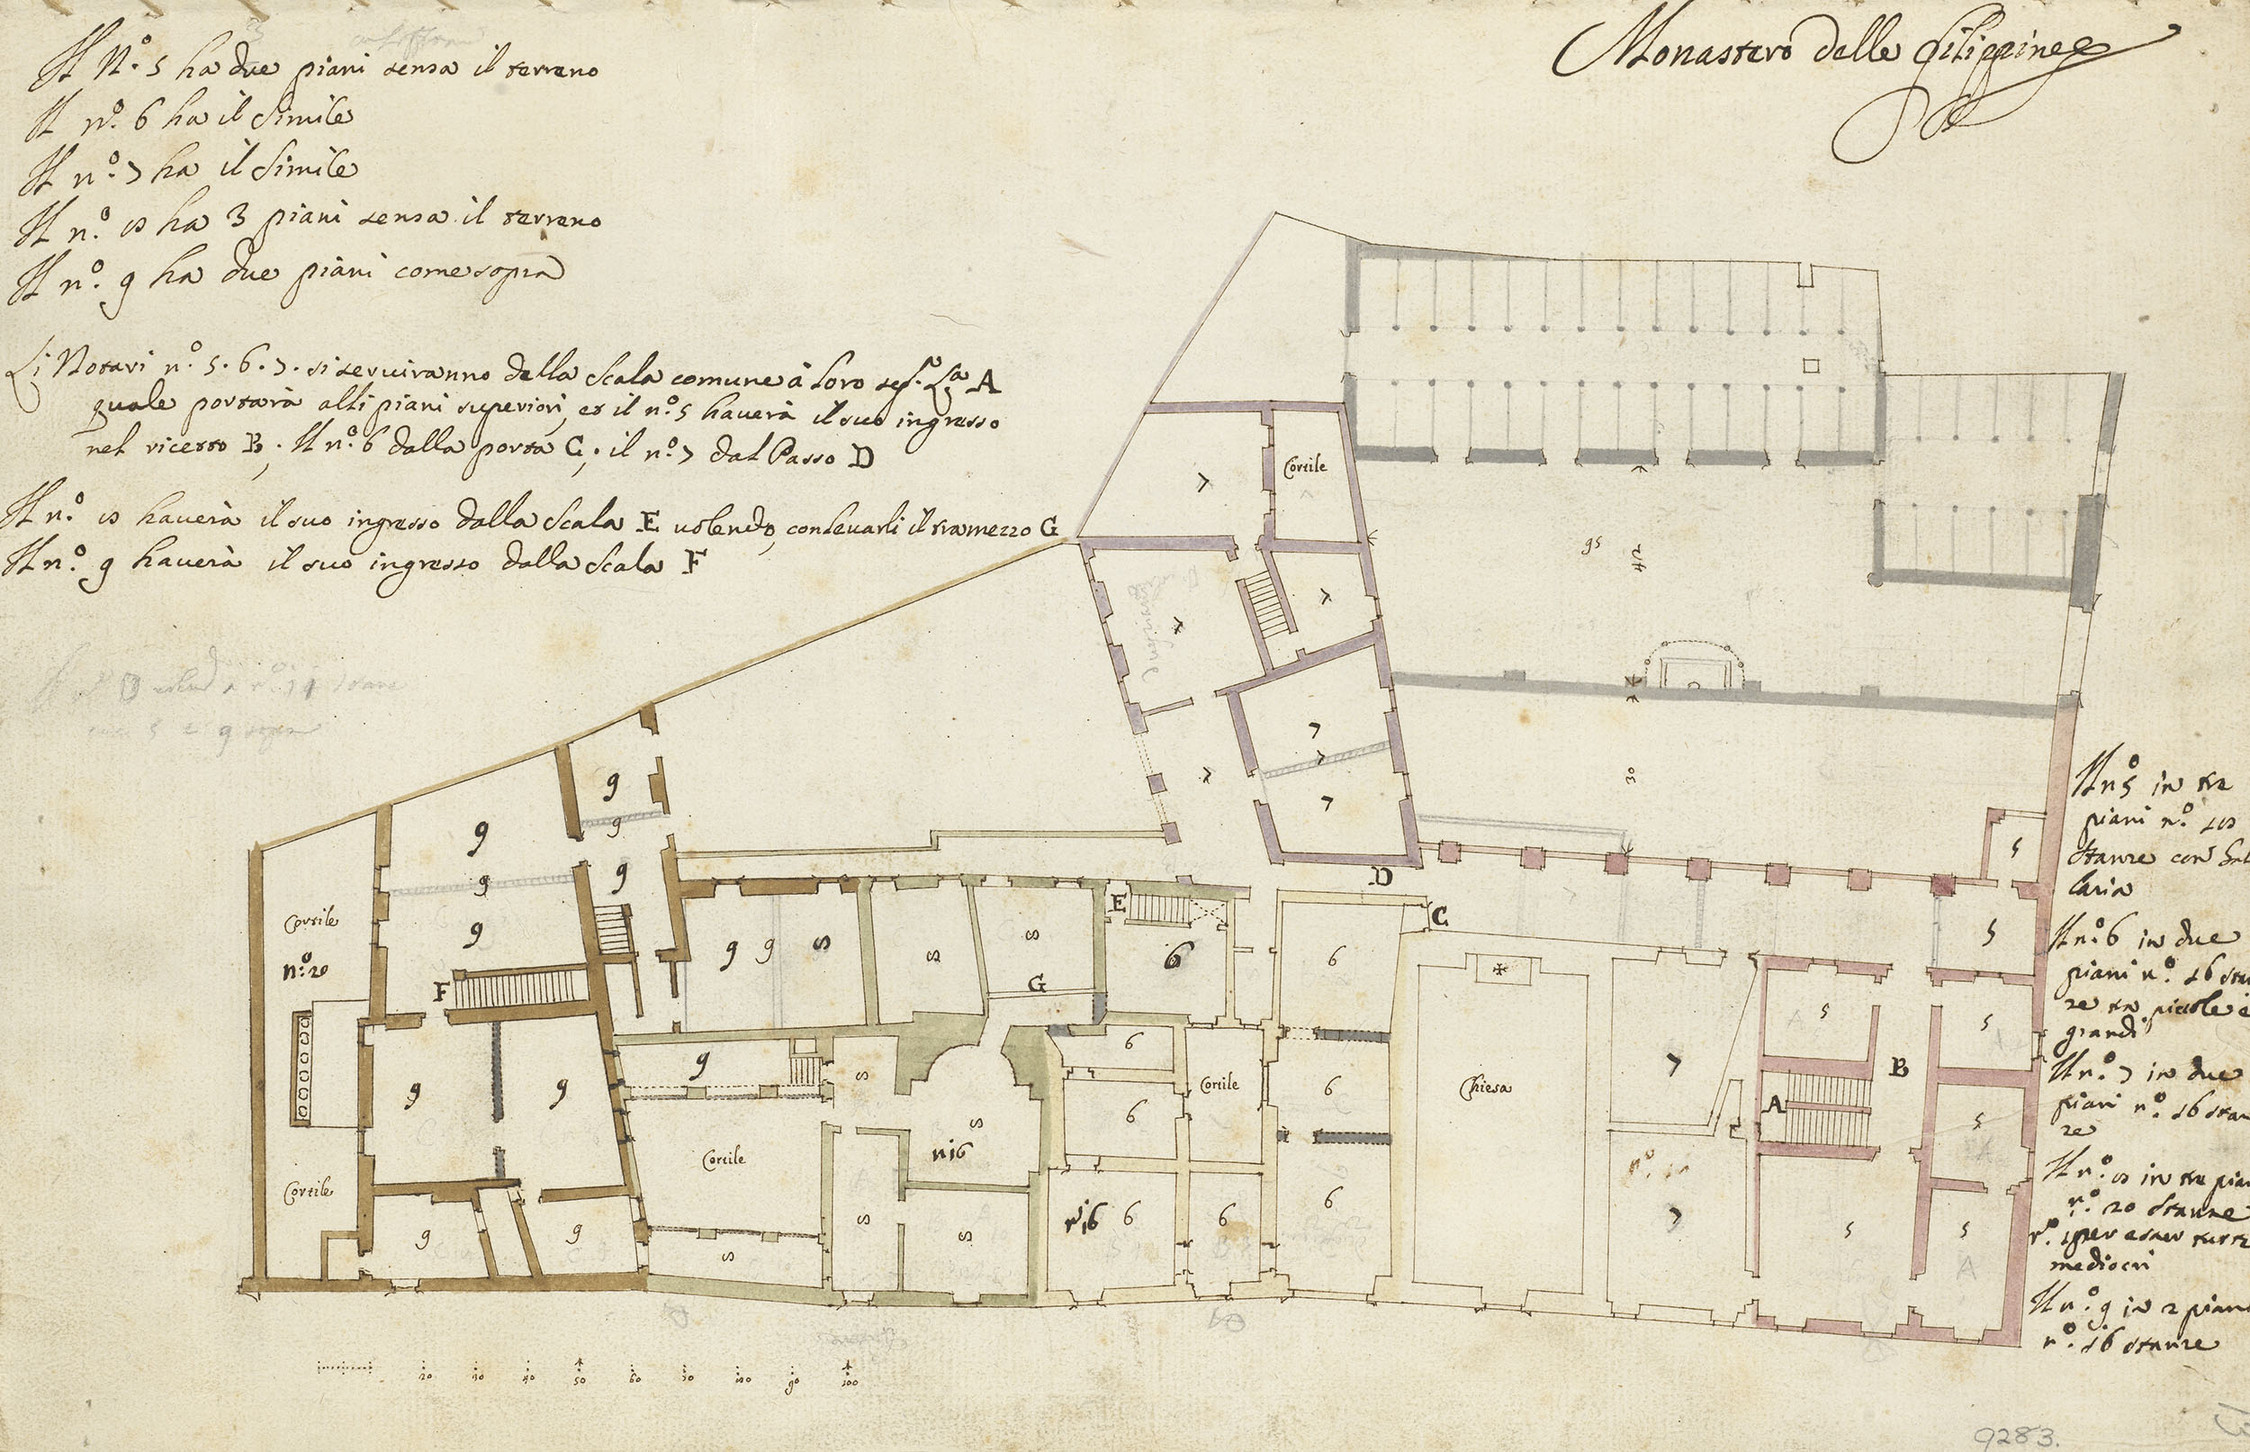 Monastero delle Filippine
Il N.o 5 ha due piani senza il terreno
Il n.o 6 ha il simile
Il n.o 7 ha il simile
Il n.o 8 ha 3 piani senza il terreno
Il n.o 9 ha due piani come sopra
Li Notari n.o 5. 6. 7. si serviranno della scala comune à loro A
quale portarà alli piani superiori, et il n.o 5 haverà il suo ingresso
nel ricetto B, Il n.o 6 dalla porta C, il n.o 7 dal Passo D
Il n.o 8 haverà il suo ingresso dalla scala E volendo, con levarli il tramezzo G
Il n.o 9 haverà il suo ingresso dalla scala F
Cortile
7
95
7
7
7
7
7
7
30
9
9
9
9
9
9
5
Cortile
n.o 20
9
F
9
9
8
8
8
G
E
6
D
C
6
5
5
5
7
B
A
5
5
5
5
Chiesa
7
9
9
9
8
8
n 16
Cortile
Cortile
9
9
8
8
8
6
6
Cortile
6
6
n 16
6
6
6
Il n 5 in tre
piani n.o 18
stanze con
laria
Il n.o 6 in due
piani n.o 16
ze tra piccole e
grandi
Il n.o 7 in due
piani n.o 16 stan
ze
Il n.o 8 in tre pia
n.o 20 stanze
per esser tutte
mediocri
Il n.o 9 in 2 piani
n.o 16 stanze
50
60
90
100
9283.